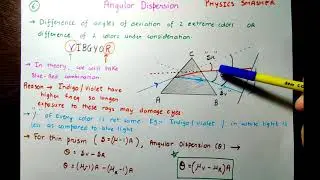 6 Angular Dispersion PHYSICS SMASHER
→ Difference of angles of deviation of 2 extreme colors OR
difference of 2 colors under consideration.
VIBGYOR
→ In theory, we will take
Blue-Red combination
Reason → Indigo/violet have
higher freq so longer
exposure to these rays may damage eyes.
→ % of every color is not same Eg:- Indigo/violet % in white light is
less as compared to blue light.
→ For thin prism (δ=(μ-1)A) Angular Dispersion (θ) →
θ = δv - δR
θ = (μv-1)A - (μR-1)A
θ = (μv - μR)A
A
B
C
δR